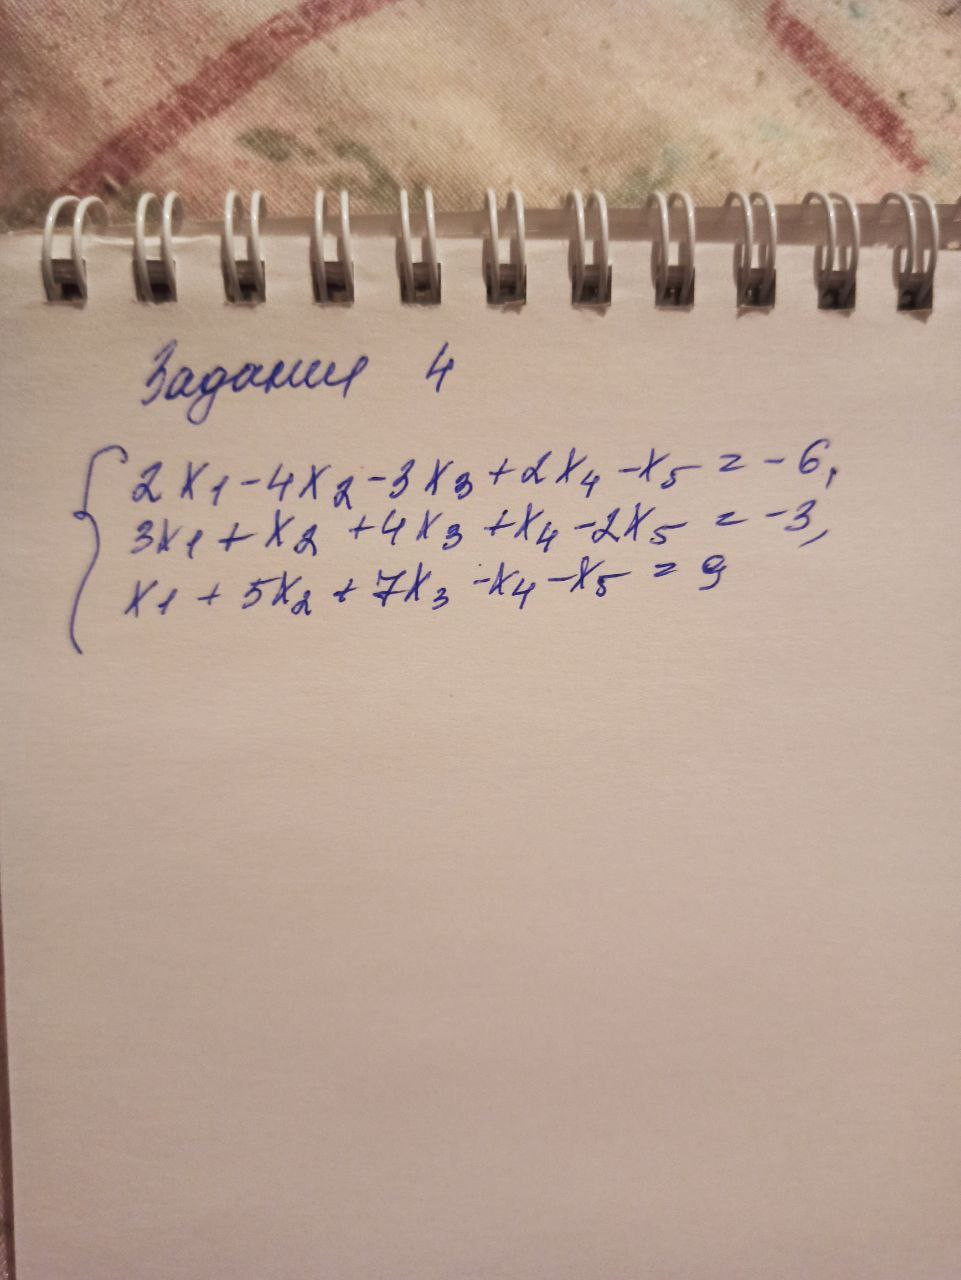 Задание 4
2x₁ - 4x₂ - 3x₃ + 2x₄ - x₅ = -6,
3x₁ + x₂ + 4x₃ + x₄ - 2x₅ = -3,
x₁ + 5x₂ + 7x₃ - x₄ - x₅ = 9